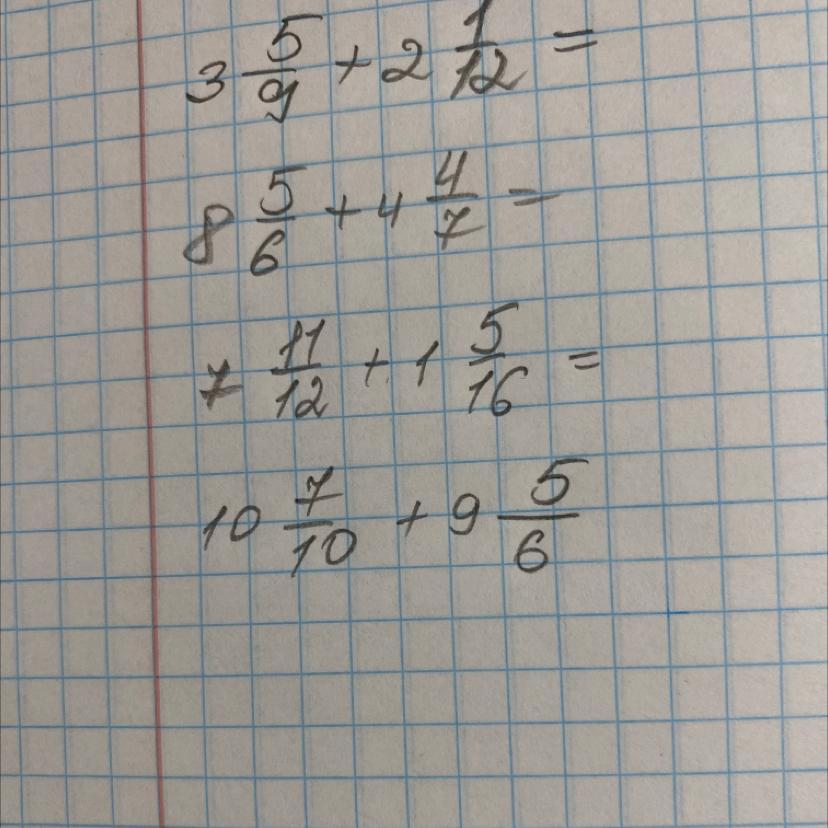 3 5/9 + 2 1/12 =
8 5/6 + 4 4/7 =
7 11/12 + 1 5/16 =
10 7/10 + 9 5/6